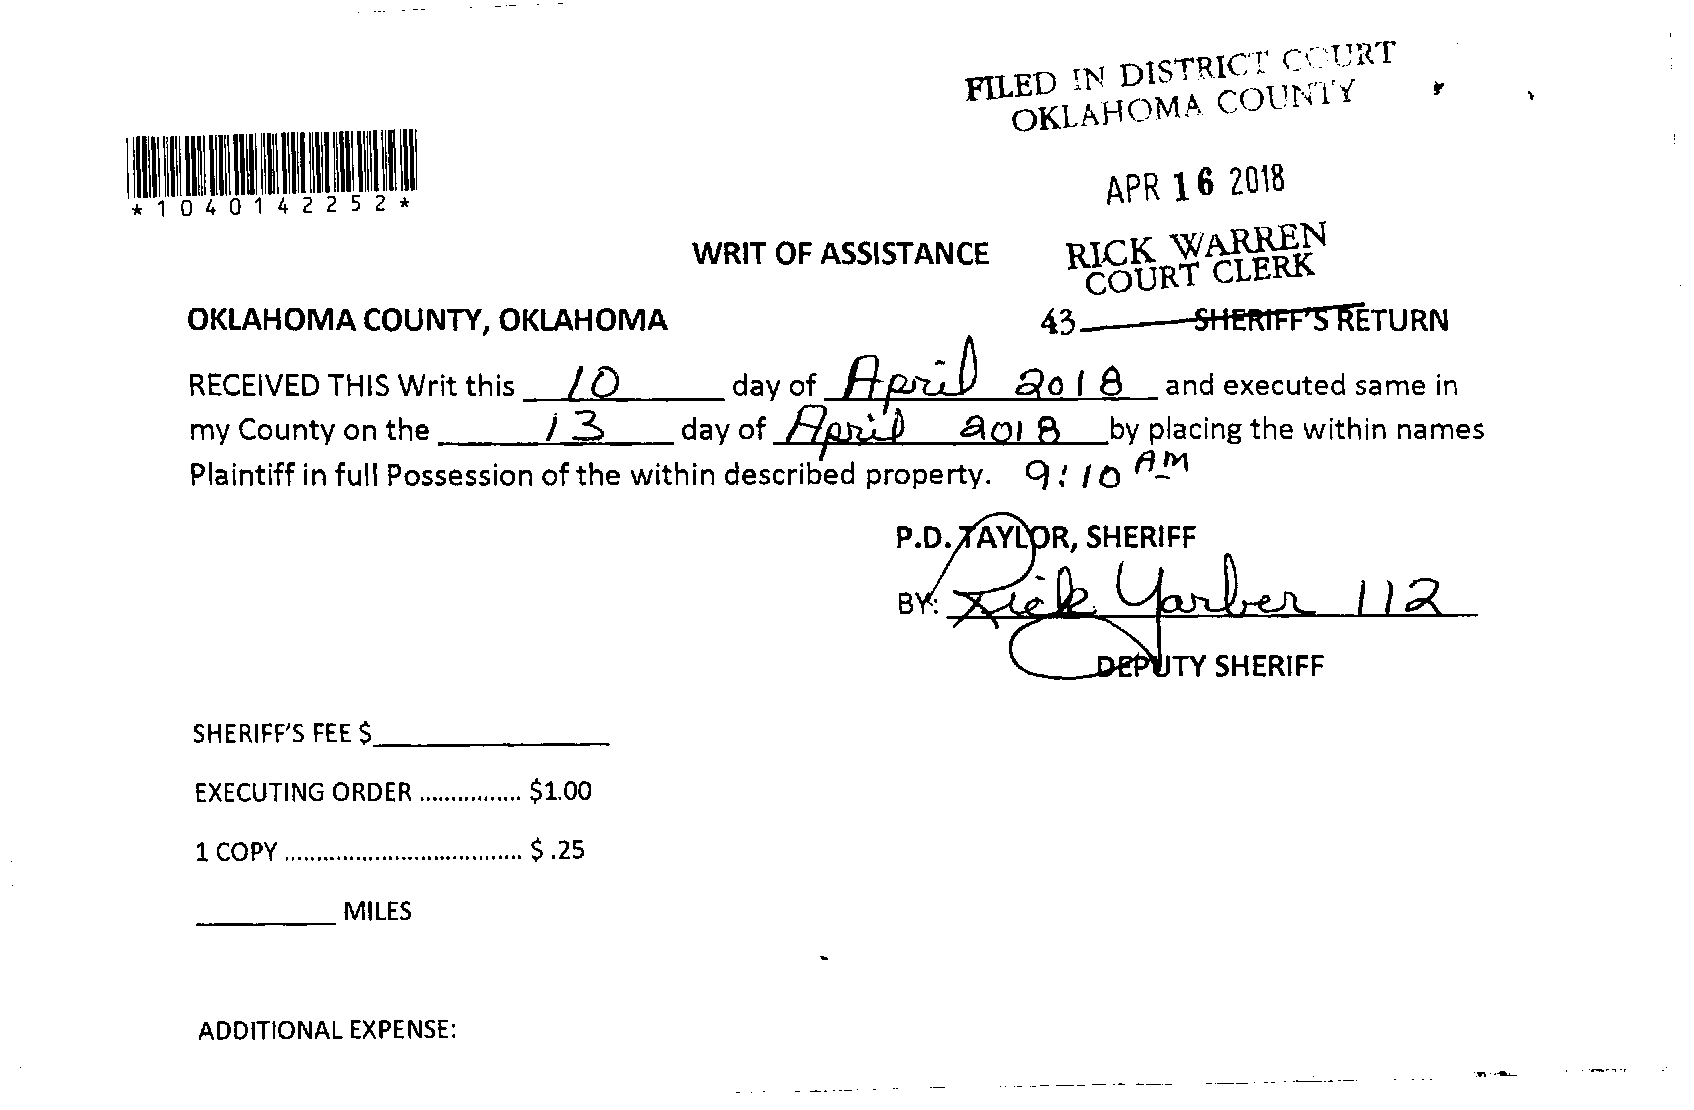 FILED IN DISTRICT COURT
OKLAHOMA COUNTY
*1040142252*
APR 16 2018
WRIT OF ASSISTANCE
RICK WARREN
COURT CLERK
OKLAHOMA COUNTY, OKLAHOMA 43 SHERIFF'S RETURN
RECEIVED THIS Writ this 10 day of April 2018 and executed same in
my County on the 13 day of April 2018 by placing the within names
Plaintiff in full Possession of the within described property. 9:10 AM
P.D. TAYLOR, SHERIFF
BY: Rick Yarber 112
DEPUTY SHERIFF
SHERIFF'S FEE $
EXECUTING ORDER ................ $1.00
1 COPY ...................................... $ .25
MILES
ADDITIONAL EXPENSE: